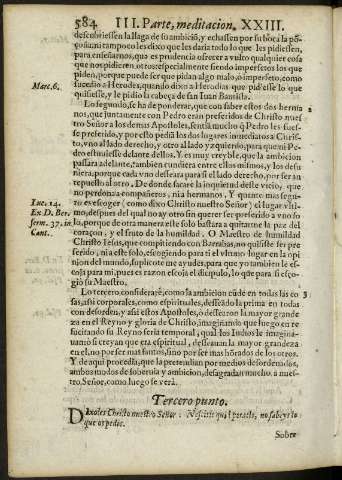 584 III. Parte, meditacion. XXIII.
descubriessen la llaga de su ambiciõ, y echassen por su boca la põ-
çoña: ni tampoco les dixo que les daria todo lo que les pidiessen,
para enseñarnos, que es prudencia ofrecer a vulto qualquier cosa
que nos pidieren otros: especialmente siendo imperfetos los que
piden, porque puede ser que pidan algo malo, o imperfeto, como
Marc. 6. sucedio a Herodes, quando dixo a Herodias que pidiesse lo que
quisiesse, y le pidio la cabeça de san Iuan Bautista.
Lo segundo, se ha de ponderar, que con saber estos dos herma 2
nos, que juntamente con Pedro eran preferidos de Christo nues
tro Señor a los demas Apostoles, sentiã mucho q̃ Pedro les fues-
se preferido, y por esto pedia los dos lugares inmediatos a Chris-
to, vno al lado derecho, y otro al lado yzquierdo, para que ni Pe-
dro estuuiesse delante dellos. Y es muy creyble, que la ambicion
passara adelante, tambien cundiera entre ellos mismos, y los de su
niera, porque cada vno desseara para si el lado derecho, por ser an
tepuesto al otro. De donde sacare la inquietud deste vicio, que
no perdona a compañeros, ni a hermanos. Y quanto mas segu-
Luc. 14. ro es escoger (como dixo Christo nuestro Señor) el lugar vlti-
Ex D. Ber. mo, despues del qual no ay otro sin querer ser preferido a vno so
serm. 37. in lo, porque de otra manera este solo bastara a quitarme la paz del
Cant. coraçon, y el fruto de la humildad. O Maestro de humildad
Christo Iesus, que compitiendo con Barrabas, no quisiste ser pre
ferido, ni a este solo, escogiendo para ti el vltimo lugar en la opi
nion del mundo, suplicote me ayudes, para que yo tambien le es-
coja para mi, pues es razon escoja el dicipulo, lo que para si esco-
gio su Maestro.
Lo tercero considerarè, como la ambicion cũde en todas las co 3
sas, assi corporales, como espirituales, desseãdo la primera en todas
con desorden, y assi estos Apostoles, ò dessearon la mayor grande
za en el Reyno y gloria de Christo, imaginando que luego en re
sucitando su Reyno seria temporal, qual los Iudios le imagina-
uan: ò si creyan que era espiritual, desseauan la mayor grandeza
en el, no por ser mas santos, sino por ser mas hõrados de los otros.
Y de aqui procedia, que la pretendian por medios desordenados,
ambos modos de soberuia y ambicion, desagradan mucho a nues-
tro Señor, como luego se verà.
Tercero punto.
DIxoles Christo nuestro Señor: Nescitis quid petatis, no sabeys lo
que os pedis.
Sobre